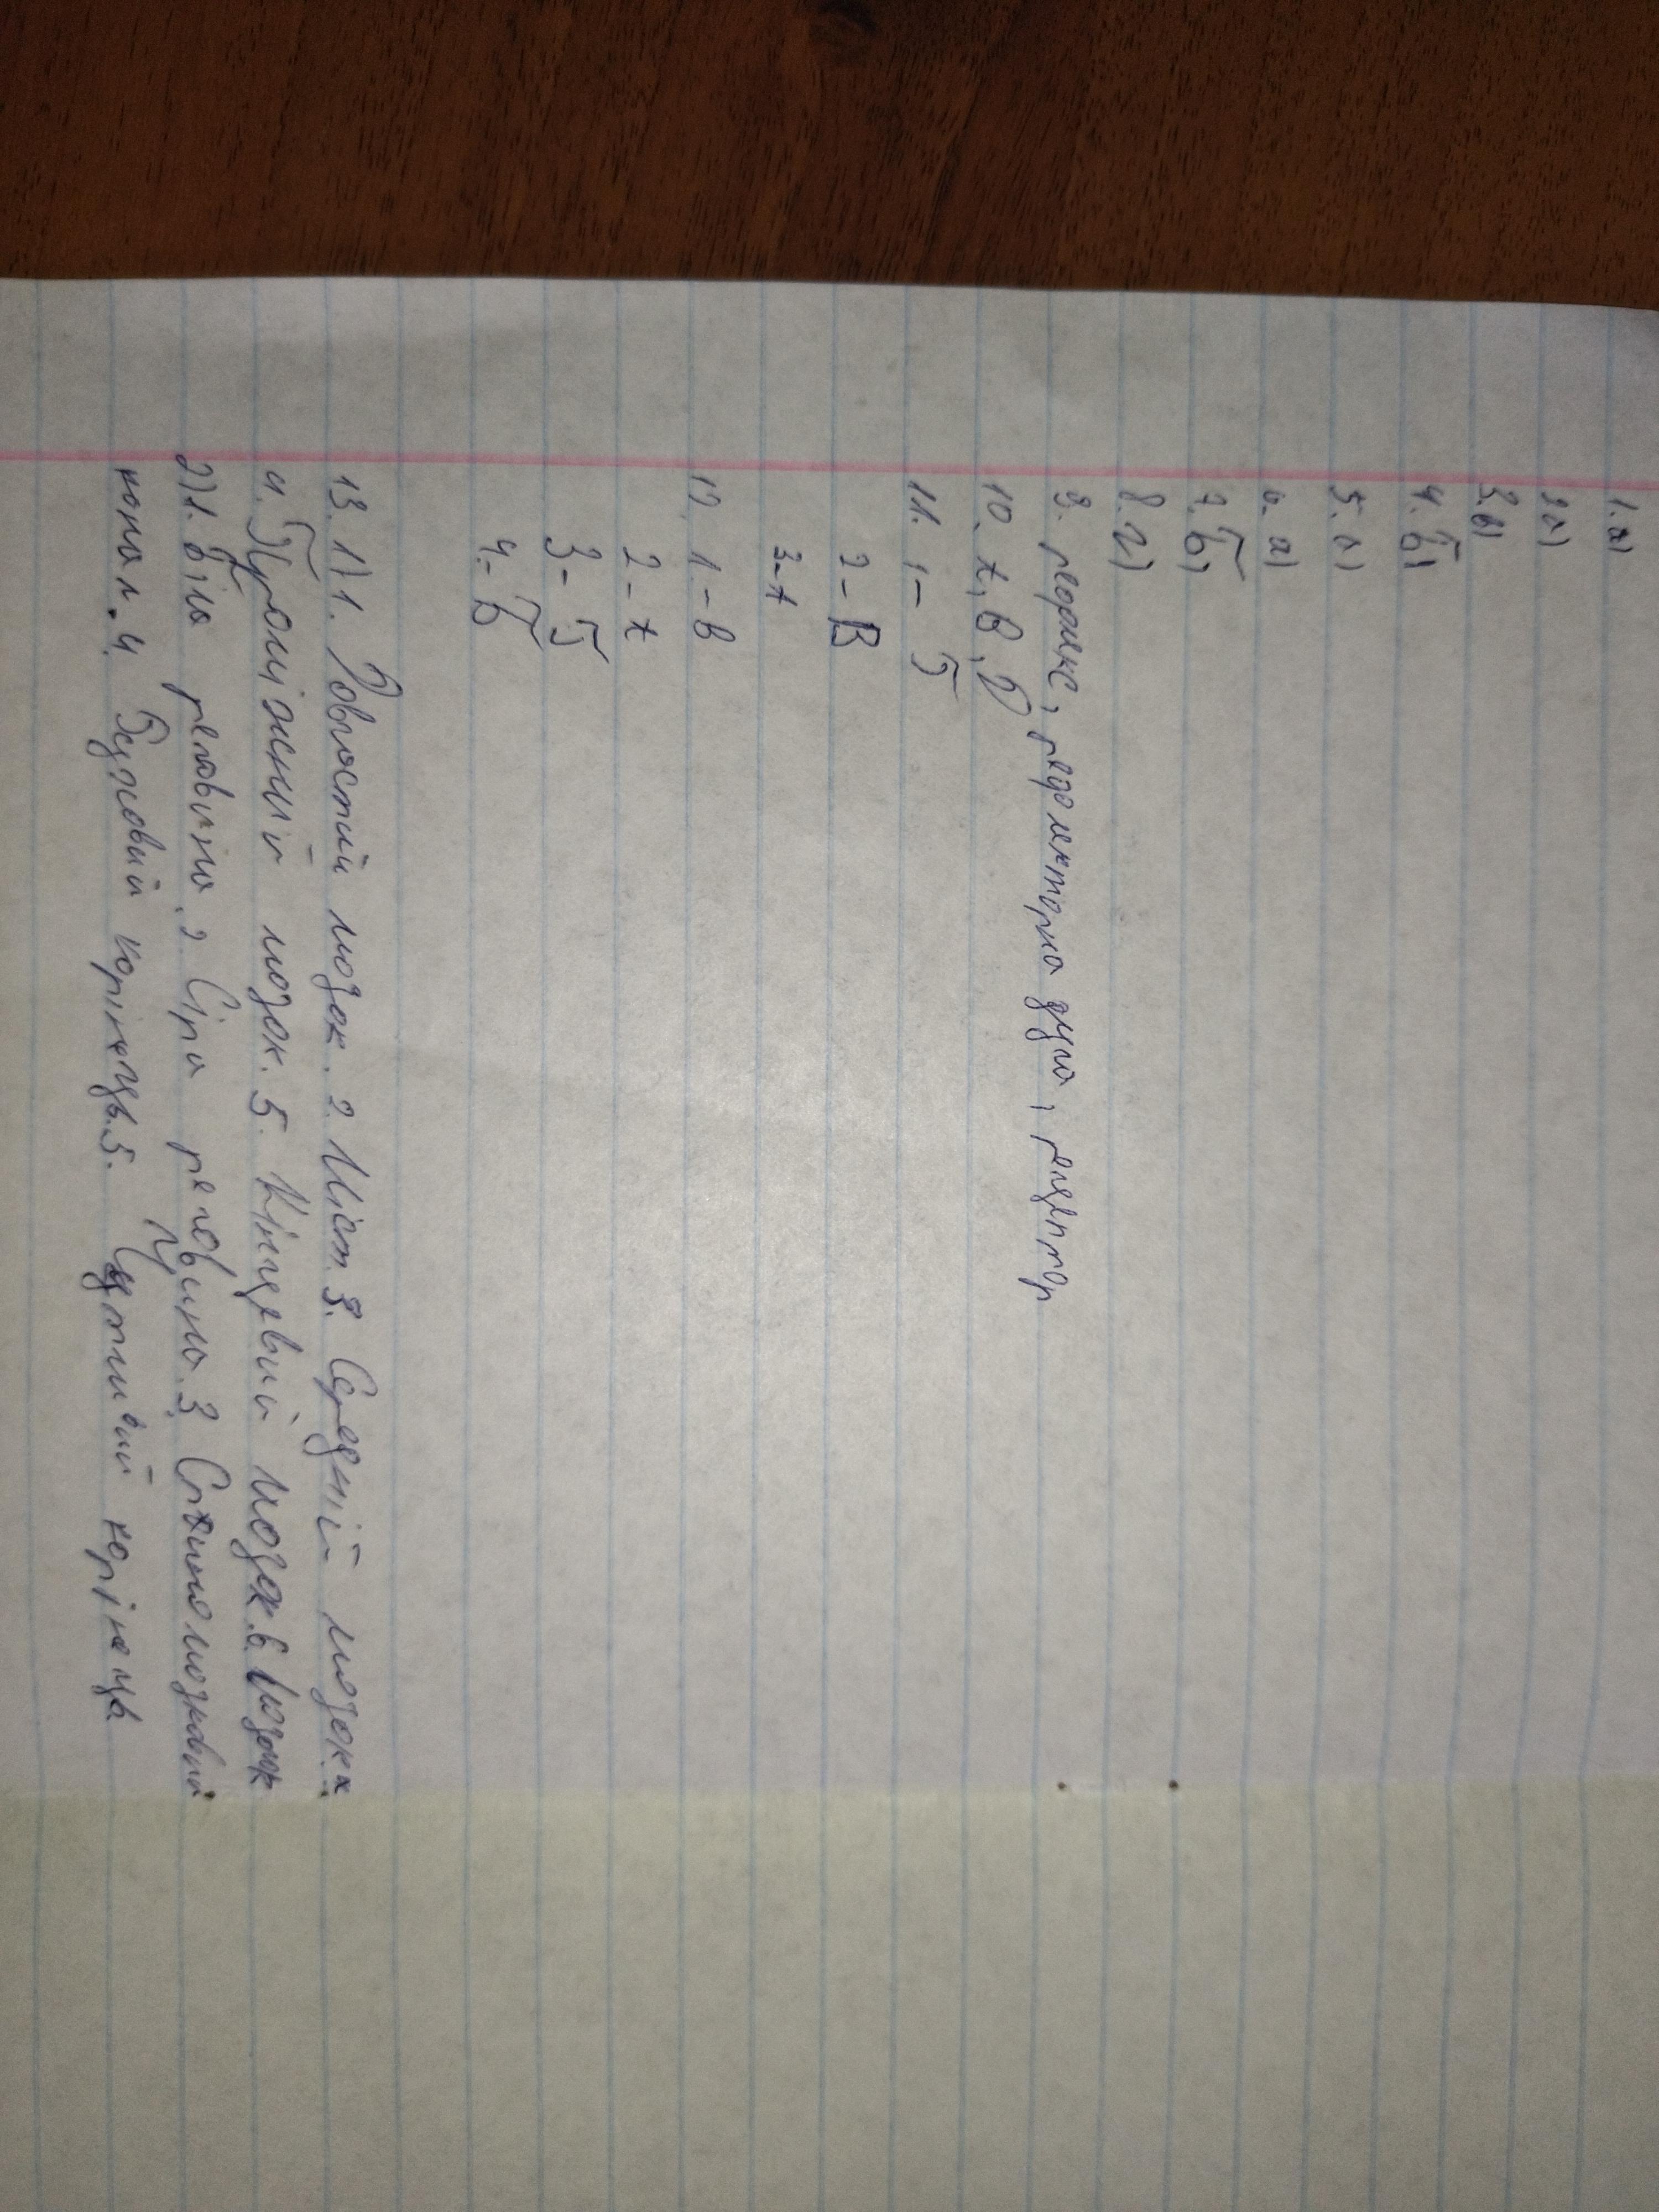 1. а)
2 а)
3. в)
4. б)
5. в)
6. а)
7. б)
8. г)
9. рефлекс, рефлекторна дуга, рецептор
10. А, В, Д
11. 1 – Б
2 – В
3 – А
12. 1 – В
2 – А
3 – Б
4. – Б
13. 1) 1. Довгастий мозок. 2. Міст. 3. Средній мозок.
4. Проміжний мозок. 5. Кінцевий мозок. 6.
2) 1. Біла речовина. 2. Сіра речовина. 3. Спинномозковий
канал. 4. Задній корінець. 5. корінець